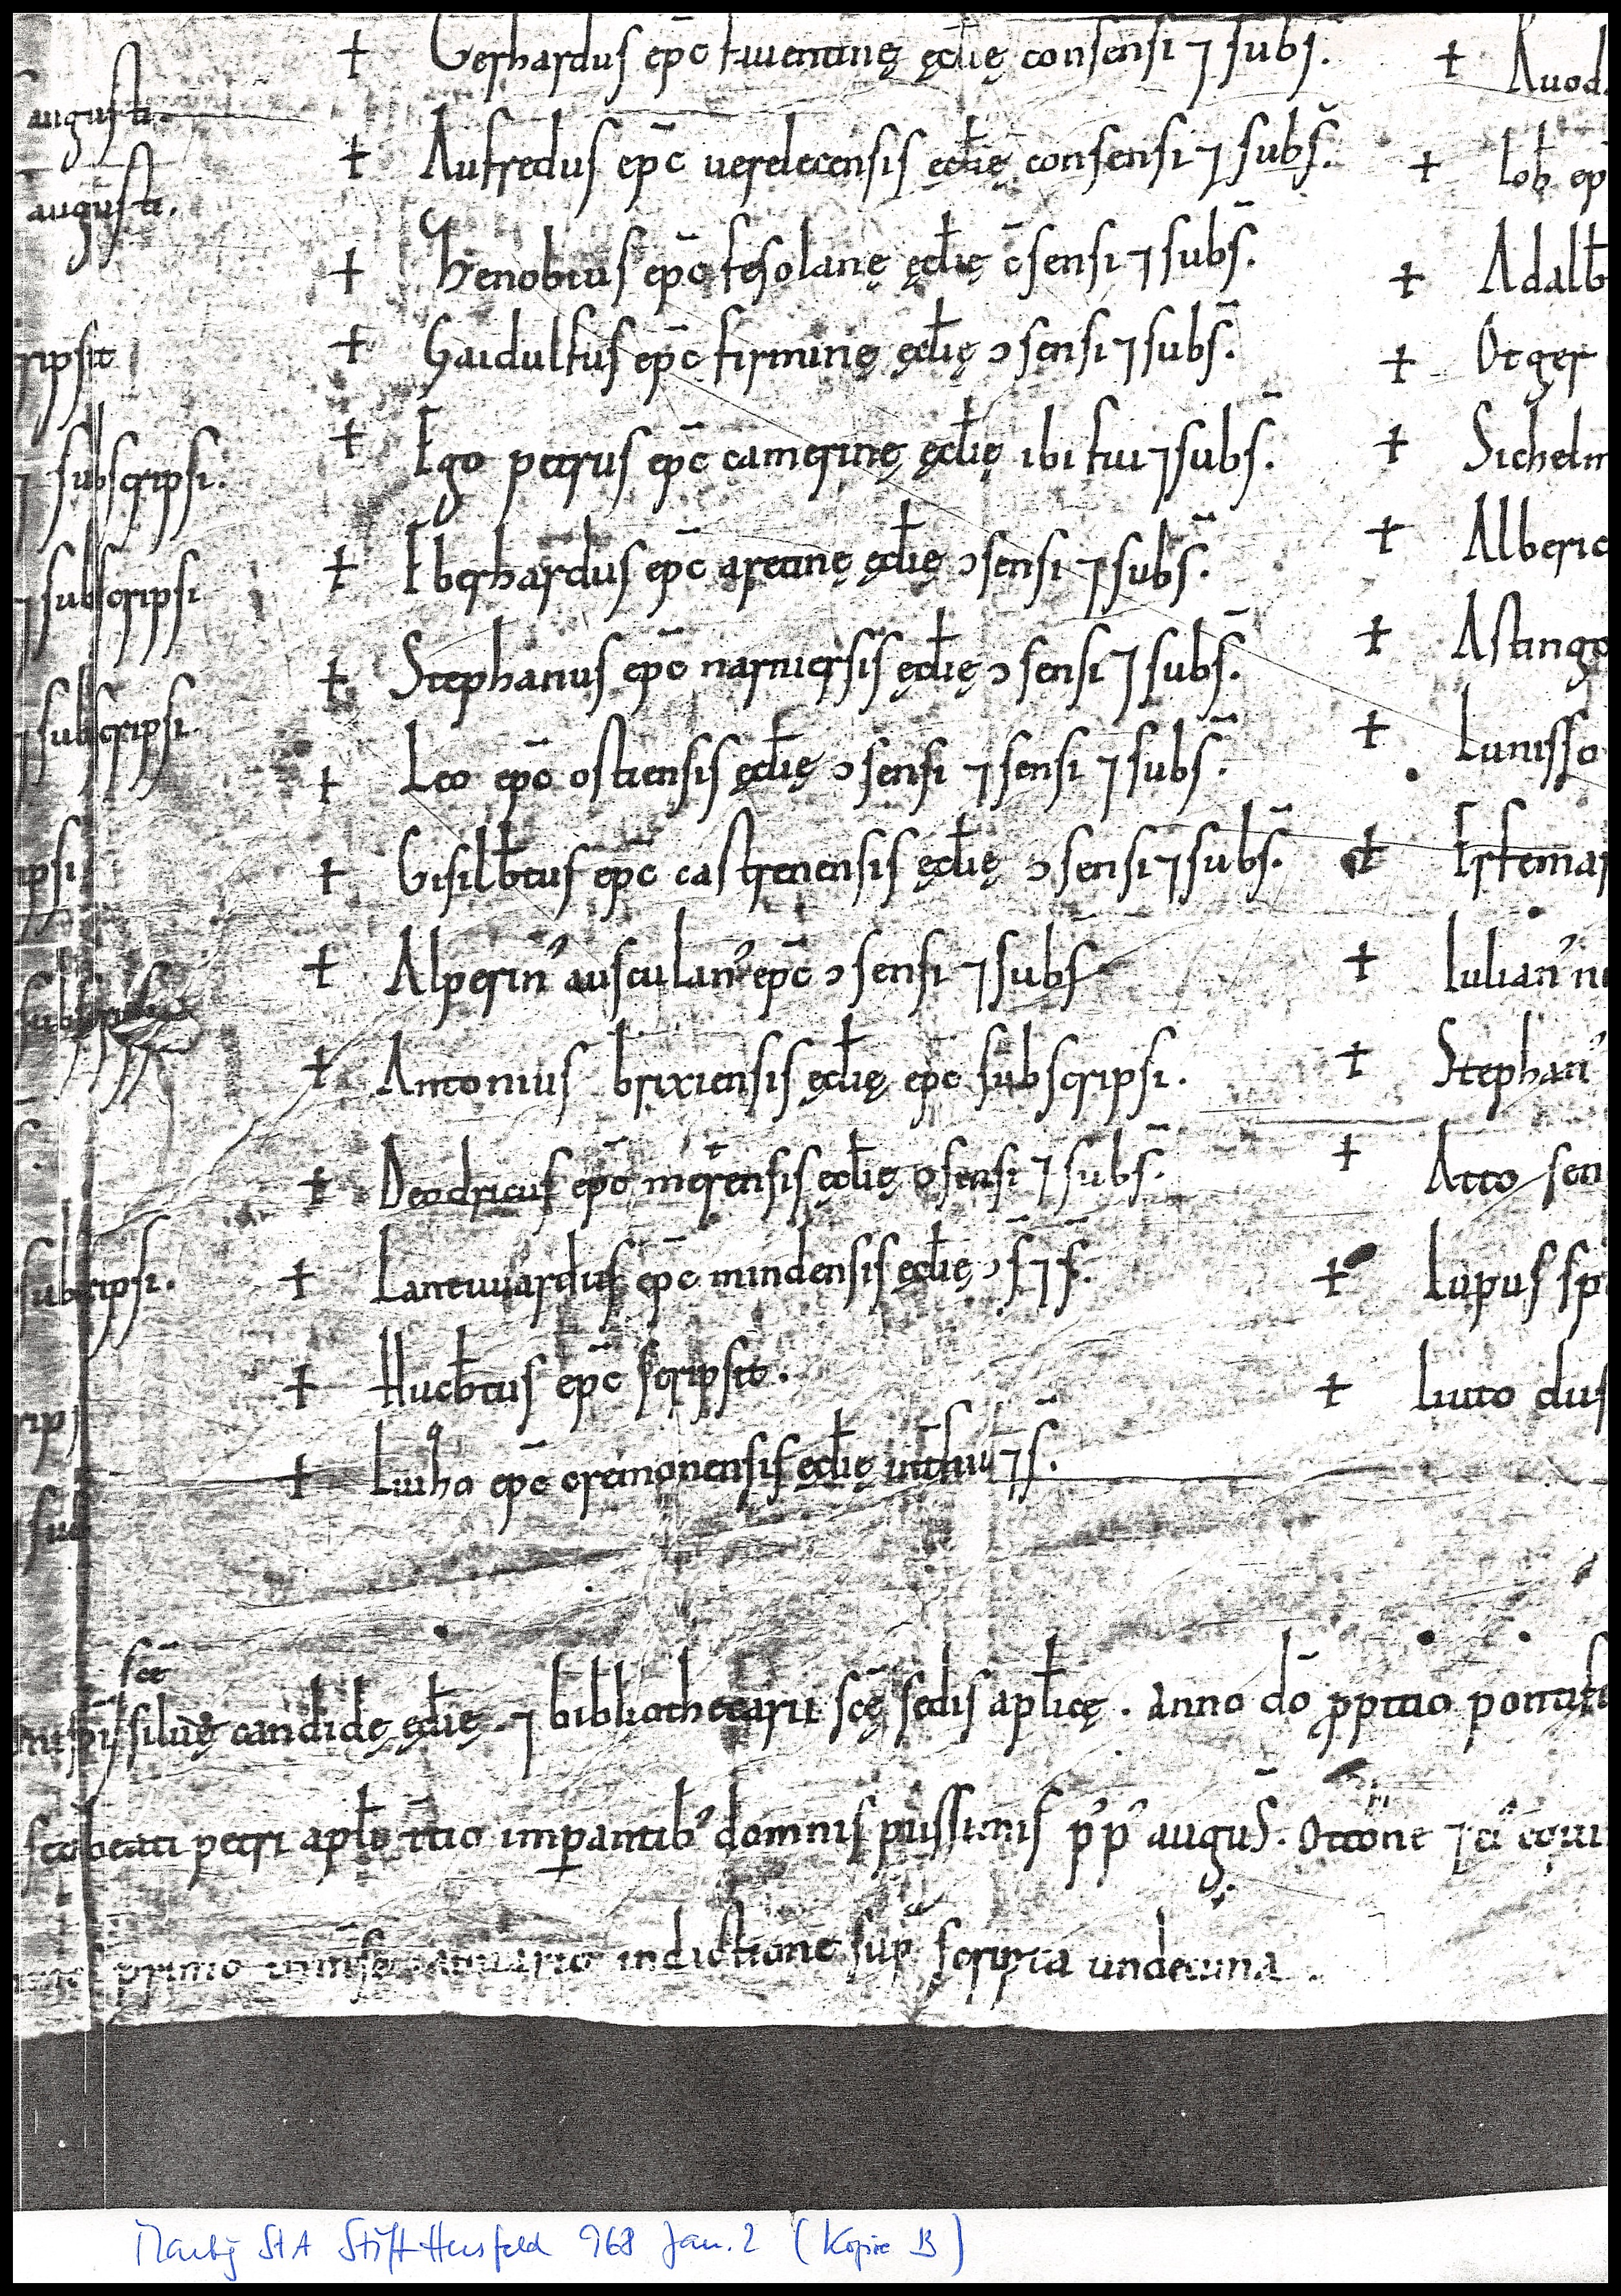 augusti.
augusti.
ripsit
⁊ subscripsi.
⁊ subscripsi
⁊ subscripsi
ipsi
subscripsi.
sub
† Gerhardus ep̄c faventinę ęcl̄ię consensi ⁊ subs̄.
† Aufredus ep̄c uerelecensis ęcl̄ię consensi ⁊ subs̄.
† Zenobius ep̄c fesolanę ęcl̄ię c̄sensi ⁊ subs̄.
† Gaidulfus ep̄c firminę ęcl̄ię ɔsensi ⁊ subs̄.
† Ego petrus ep̄c camerinę ęcl̄ię ibi fui ⁊ subs̄.
† Eberhardus ep̄c aretinę ęcl̄ię ɔsensi ⁊ subs̄.
† Stephanus ep̄c narniersis ęcl̄ię ɔsensi ⁊ subs̄.
† Leo ep̄c ostiensis ęcl̄ię ɔsensi ⁊ sensi ⁊ subs̄.
† Gisilb̄tus ep̄c castrenensis ęcl̄ię ɔsensi ⁊ subs̄.
† Alperin᾽ ausculan᾽ ep̄c ɔsensi ⁊ subs̄
† Antonius brixiensis ęcl̄ię ep̄c subscripsi.
† Deodricus ep̄c metensis ęcl̄ię ɔsensi ⁊ subs̄.
† Lantwardus ep̄c mindensis ęcl̄ię ɔs̄ ⁊ s̄.
† Hucb̄tus ep̄c scripsit.
† Liuzo ep̄c cremonensis ęcl̄ię int̄fui ⁊ s̄.
† Ruod
† Iob ep
† Adalb
† Otger
† Sichelm
† Alberic
† Astingo
† Lunisso
† Erfemar
† Iulian᾽
† Stephan᾽
† Atto sen
† Lupus sp
† Liuto
sc̄e
siluę candidę ęcl̄ię ⁊ bibliothecarii sc̄ę sedis apl̄icę. anno dō ppitio pontifi
beati petri apl̄i t̄tio imperantib᾽ domnis piissimis p᾽p᾽ augus̄. Ottone ⁊ ei᾽
primo in mense ianuario indictione sup̄ scripta undecima.
Marbg StA Stift Hersfeld 968 Jan. 2 (Kopie B)